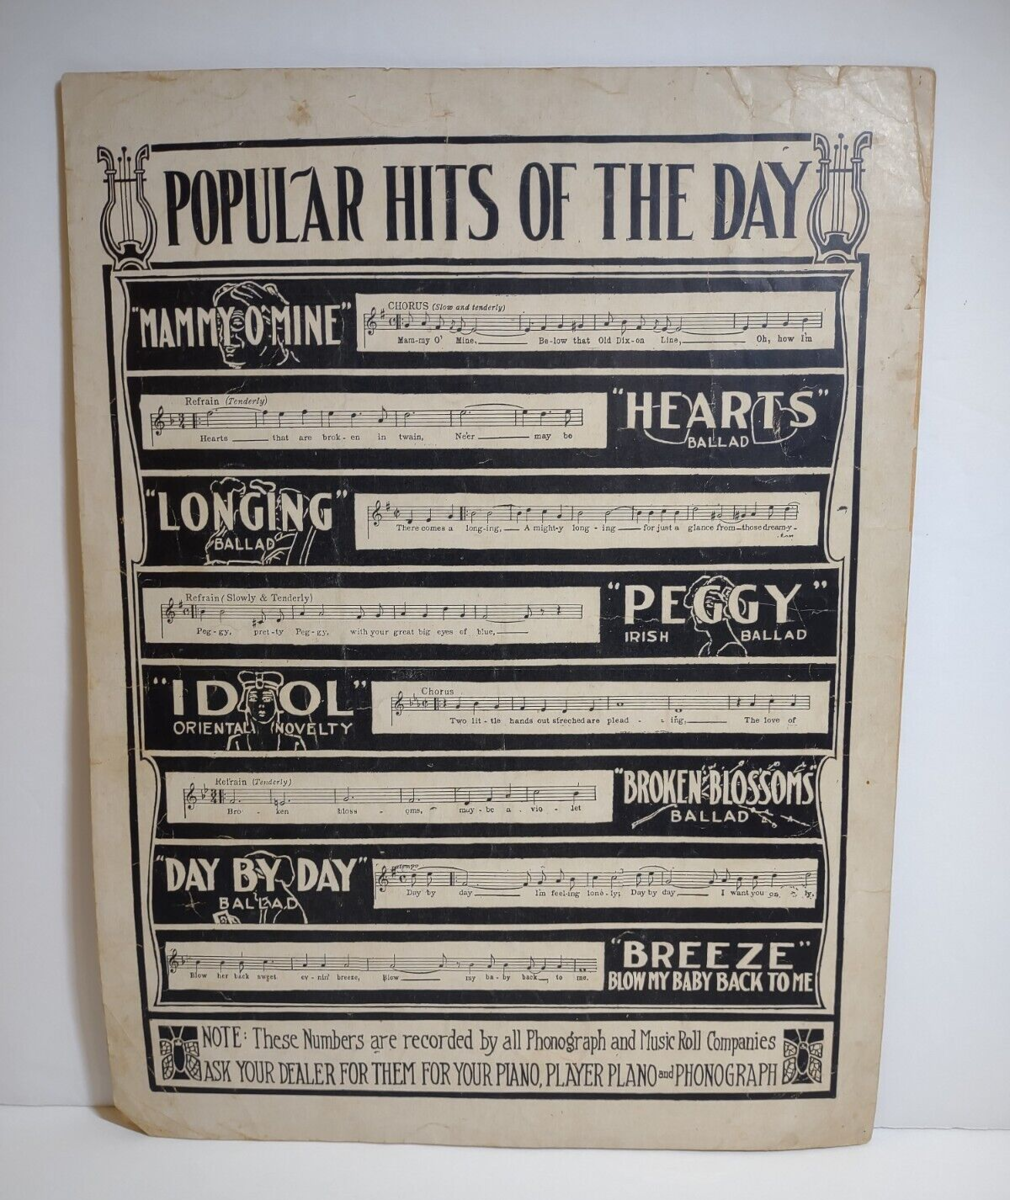 POPULAR HITS OF THE DAY
"MAMMY O' MINE"
CHORUS (Slow and tenderly)
Mam-my O' Mine, Be-low that Old Dix-on Line, Oh, how I'm
Refrain (Tenderly)
Hearts that are brok-en in twain, Ne'er may be
"HEARTS"
BALLAD
"LONGING"
BALLAD
There comes a long-ing, A might-y long-ing for just a glance from those dream-y
Refrain (Slowly & Tenderly)
Peg-gy, pret-ty Peg-gy, with your great big eyes of blue,
"PEGGY"
IRISH BALLAD
"IDOL"
ORIENTAL NOVELTY
Chorus
Two lit-tle hands out streched are plead-ing, The love of
Refrain (Tenderly)
Bro-ken bloss-oms, may-be a vio-let
"BROKEN BLOSSOMS"
BALLAD
"DAY BY DAY"
BALLAD
Day by day I'm feel-ing lone-ly; Day by day I want you on-ly,
Blow her back sweet ev-nin' breeze, Blow my ba-by back to me.
"BREEZE"
BLOW MY BABY BACK TO ME
NOTE: These Numbers are recorded by all Phonograph and Music Roll Companies
ASK YOUR DEALER FOR THEM FOR YOUR PIANO, PLAYER PLANO and PHONOGRAPH